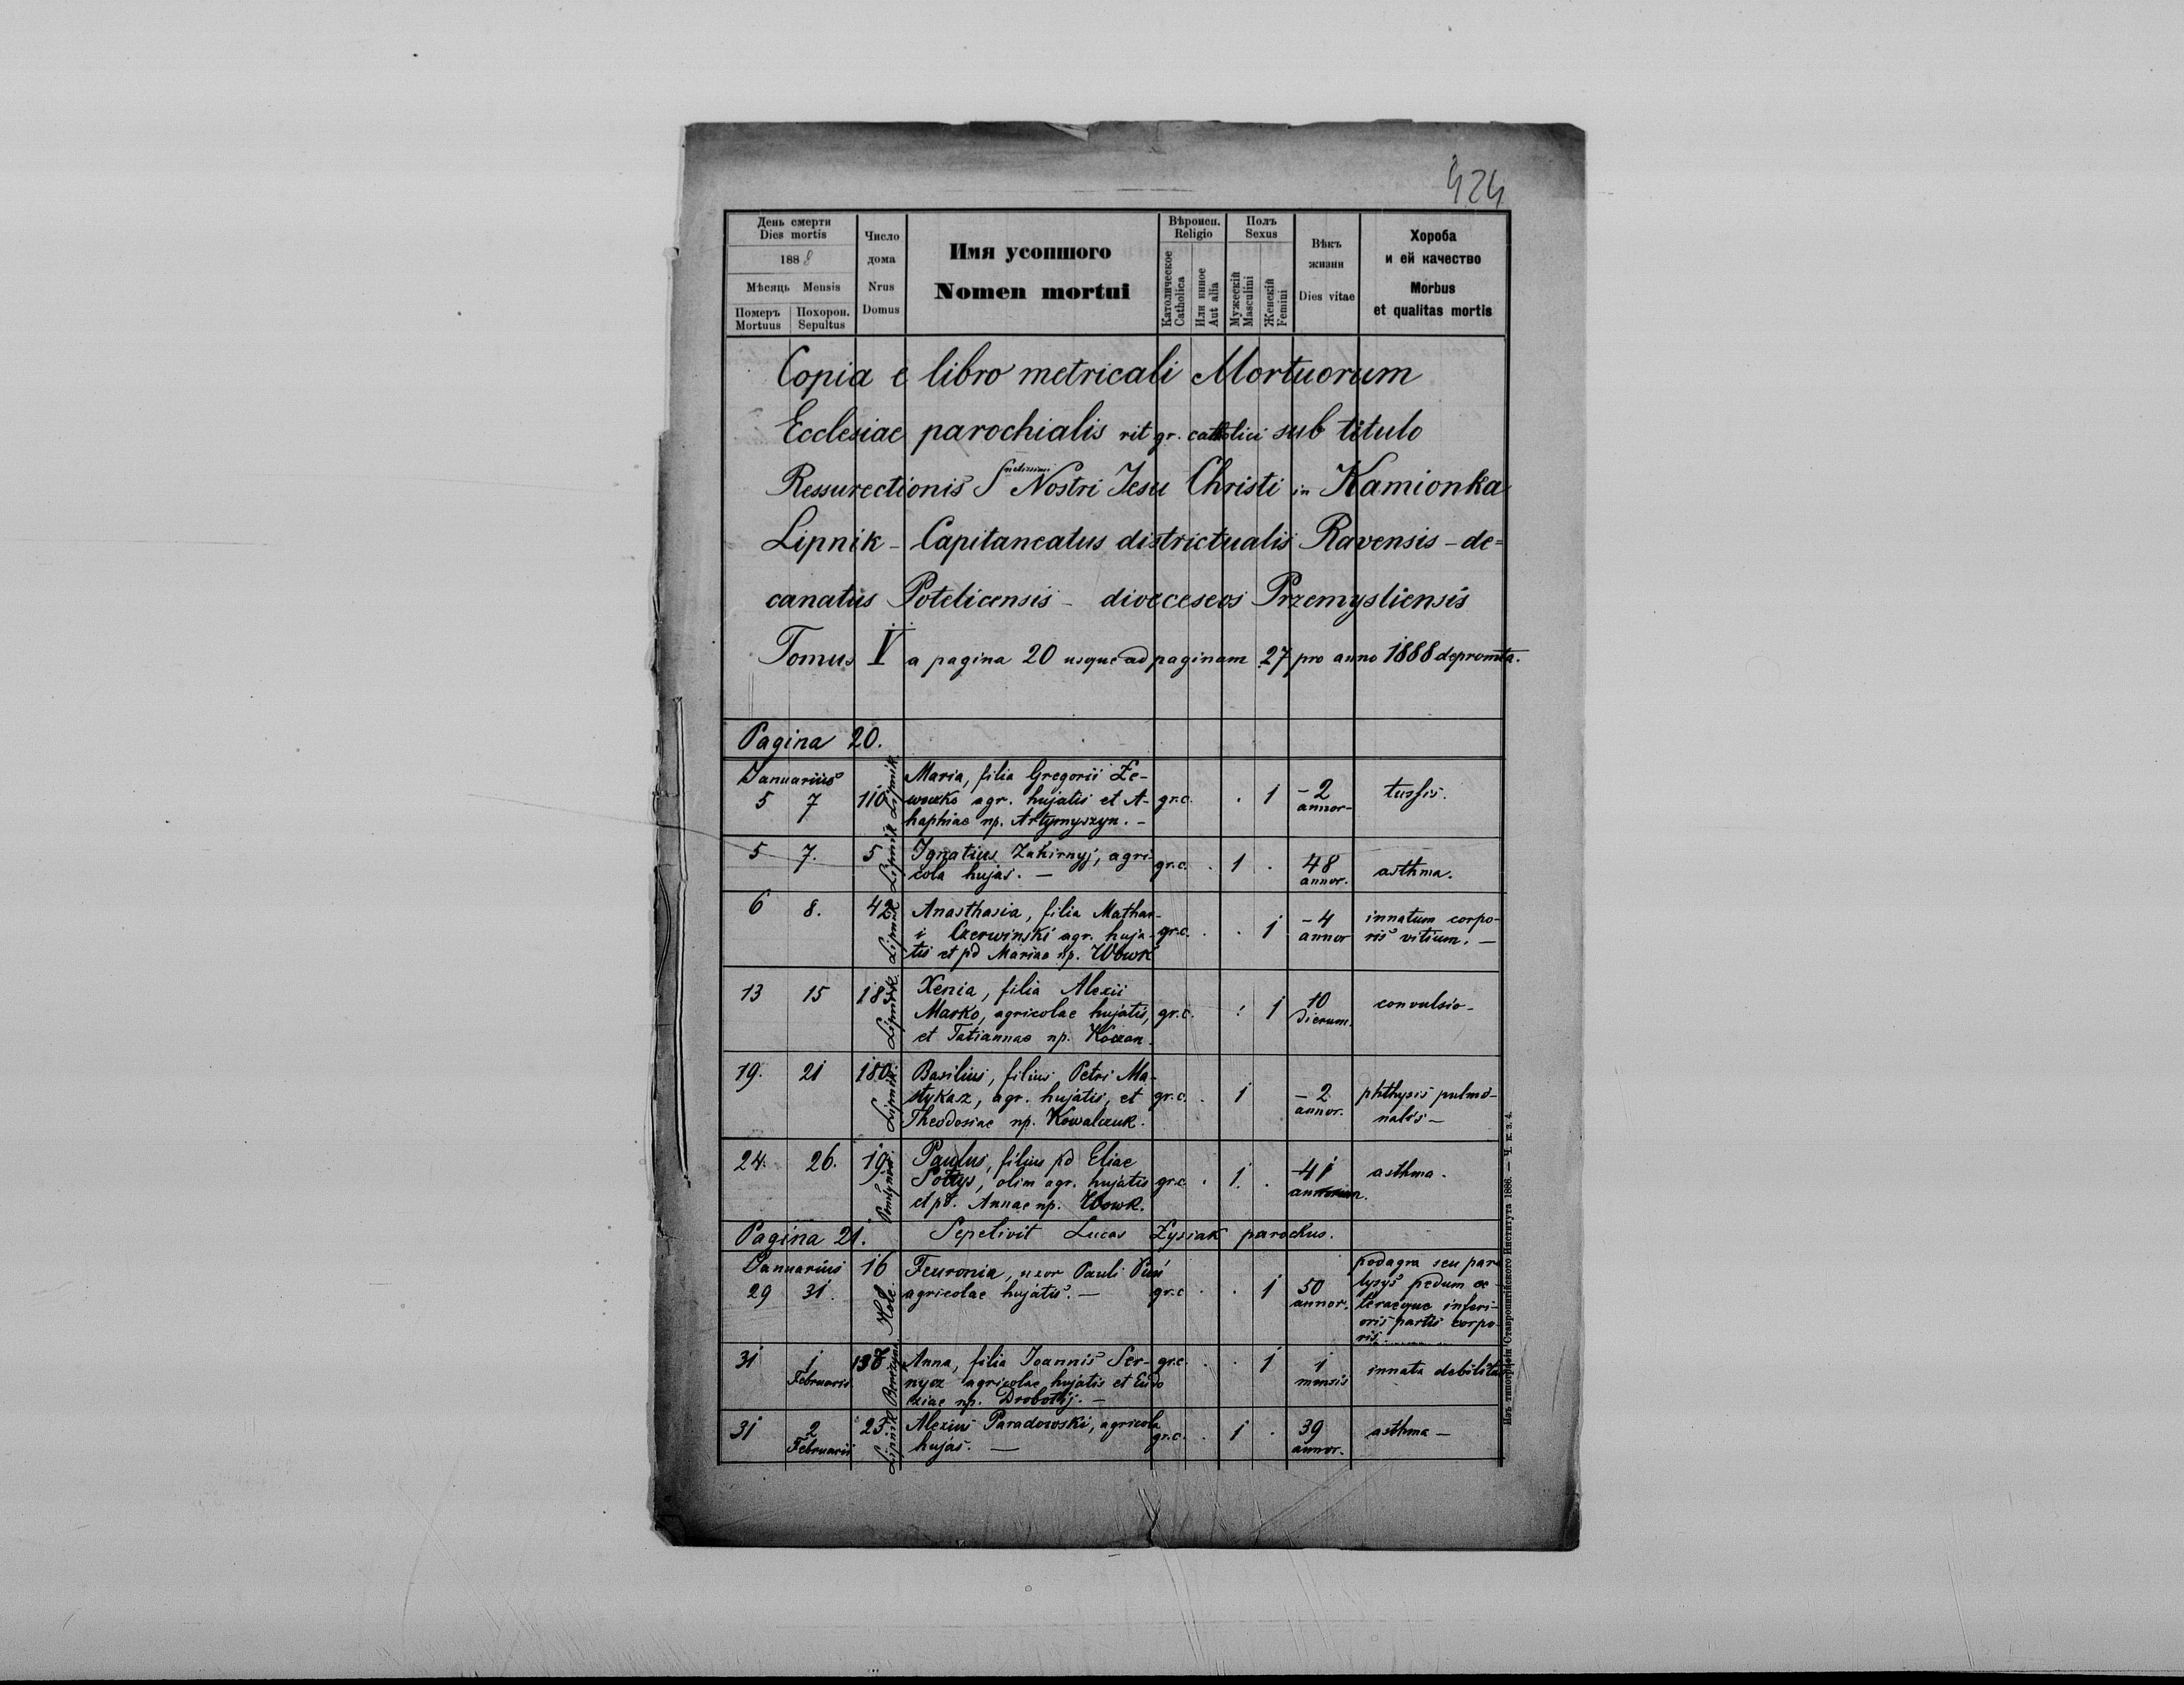 424
День смерти
Dies mortis
1888
Мѣсяць Mensis
Померъ Mortuus
Похорон. Sepultus
Число дома
Nrus Domus
Имя усопшого
Nomen mortui
Вѣроисп.
Religio
Католическое Catholica
Или иное Aut alia
Полъ
Sexus
Мужескій Masculini
Женскій Femini
Вѣкъ жизни
Dies vitae
Хороба
и ей качество
Morbus
et qualitas mortis
Copia e libro metricali Mortuorum
Ecclesiae parochialis rit gr. catholici sub titulo
Ressurectionis Nostri Jesu Christi in Kamionka
Lipnik - Capitaneatus districtualis Ravensis - de=
canatus Potelicensis - dioeceseos Przemysliensis
Tomus V a pagina 20 usque ad paginam 27 pro anno 1888 depromta.
Pagina 20.
Januarius
5 7 110 Lipnik
Maria, filia Gregorii Ze-
agr. hujatis et A-
haphiae np. Artymyszyn. -
gr.c. . 1 - 2 annor - tussis.
5 7. 5 Lipnik
Ignatius Zakirnyj, agri-
cola hujas. -
gr.c. . 1 . 48 annor. asthma.
6 8. 42 Lipnik
Anasthasia, filia Mathae-
i Czerwinski agr. huja-
tis et pd Mariae np. Wowk
gr.c. . . 1 - 4 annor
innatum corpo-
ris vitium. -
13 15 183 Lipnik.
Xenia, filia Alexii
Marko, agricolae hujatis,
et Tatiannae np. Koczan.
gr.c. : 1 10 dierum. convulsio -
19. 21 180 Lipnik
Basilius, filius Petri Ma-
stykaz, agr. hujatis, et
Theodosiae np. Kowalczuk.
gr.c. . 1 - 2 annor.
phthysis pulmo-
nalis -
24. 26. 19.
Paulus, filius pd Eliae
Pottys, olim agr. hujatis
et pd. Annae np. Wowk.
gr.c . 1. . 41 annorum. asthma.
Pagina 21. Sepelivit Lucas Zysiak parochus.
Januarius
29 31. 16 Hole
Feuronia, uxor Pauli
agricolae hujatis. -
gr.c . . 1 50 annor.
podagra seu para
lysys pedum ce-
teraeque inferi-
oris partis corpo-
ris.
31 1 Februarii 138
Anna, filia Joannis Ser-
nycz agricolae hujatis et Eudo
xiae np. Drobotij. -
gr.c. . . 1 1 mensis innata debilitas
31 2 Februarii 25 Lipnik
Alexius Paradowski, agricola
hujas. -
gr.c. . 1 . 39 annor. asthma -
Изъ типографіи Ставропигійского Института 1886. — Ч. к. з. 4.